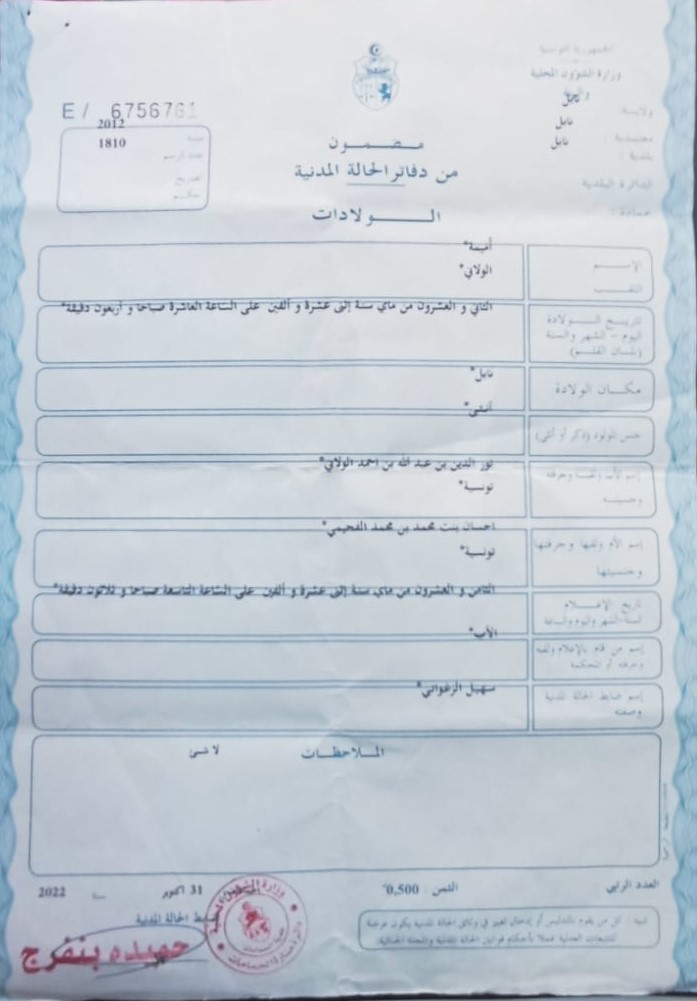 الجمهورية التونسية
وزارة الشؤون المحلية
والبيئة
ولاية: نابل
معتمدية: نابل
بلدية: نابل
الدائرة البلدية
عمادة:
E/ 6756761
سنة 2012
عدد الرسم 1810
التصريح
حكم
مضمون
من دفاتر الحالة المدنية
الولادات
الإسم
أميمة*
اللقب
الولاني*
تاريخ الولادة
اليوم - الشهر والسنة
(بلسان القلم)
الثاني و العشرون من ماي سنة إثنى عشرة و ألفين على الساعة العاشرة صباحا و أربعون دقيقة*
مكان الولادة
نابل*
جنس المولود (ذكر أو أنثى)
أنثى*
إسم الأب ولقبه وحرفته
وجنسيته
نور الدين بن عبد الله بن احمد الولاني*
تونسية*
إسم الأم ولقبها وحرفتها
وجنسيتها
احسان بنت محمد بن محمد الفحيمي*
تونسية*
تاريخ الإعلام
الثامن و العشرون من ماي سنة إثنى عشرة و ألفين على الساعة التاسعة صباحا و ثلاثون دقيقة*
إسم من قام بالإعلام ولقبه
وحرفته أو المحكمة
الأب*
إسم ضابط الحالة المدنية
وصفته
سهيل الزغواني*
الملاحظات
لا شئ
العدد الرتبي
الثمن : 0,500
31 أكتوبر
سنة 2022
ضابط الحالة المدنية
حميده بنفرج
تنبيه : كل من يقوم بالتدليس أو إدخال تغيير في وثائق الحالة المدنية يكون عرضة
للتتبعات العدلية عملا بأحكام قوانين الحالة المدنية والمجلة الجنائية.